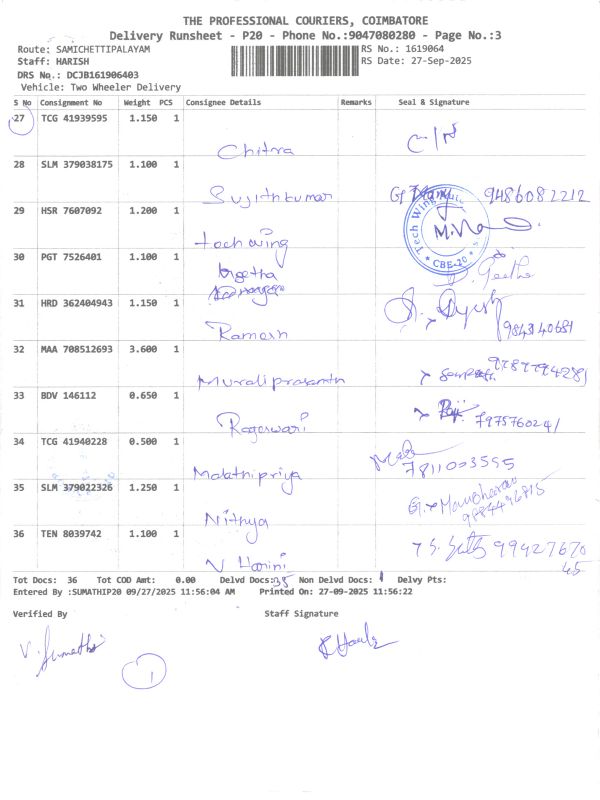 THE PROFESSIONAL COURIERS, COIMBATORE
Delivery Runsheet - P20 - Phone No.:9047080280 - Page No.:3
Route: SAMICHETTIPALAYAM
RS No.: 1619064
Staff: HARISH
RS Date: 27-Sep-2025
DRS No.: DCJB161906403
Vehicle: Two Wheeler Delivery
S No Consignment No Weight PCS Consignee Details Remarks Seal & Signature
27 TCG 41939595 1.150 1
Chitra
28 SLM 379038175 1.100 1
Sujithkumar 9486082212
29 HSR 7607092 1.200 1
Tech Wing
CBE-20
tech wing
30 PGT 7526401 1.100 1
geetha
Geetha
31 HRD 362404943 1.150 1
Ramesh 9843140681
32 MAA 708512693 3.600 1
Muraliprasanth 9787794281
33 BDV 146112 0.650 1
Rageswari 7975760241
34 TCG 41940228 0.500 1
Malathipriya 7811003555
35 SLM 379022326 1.250 1
Nithya
9884496815
36 TEN 8039742 1.100 1
V Harini 9942767045
Tot Docs: 36 Tot COD Amt: 0.00 Delvd Docs:35 Non Delvd Docs: 1 Delvy Pts:
Entered By :SUMATHIP20 09/27/2025 11:56:04 AM Printed On: 27-09-2025 11:56:22
Verified By Staff Signature
V. Sumathi
1